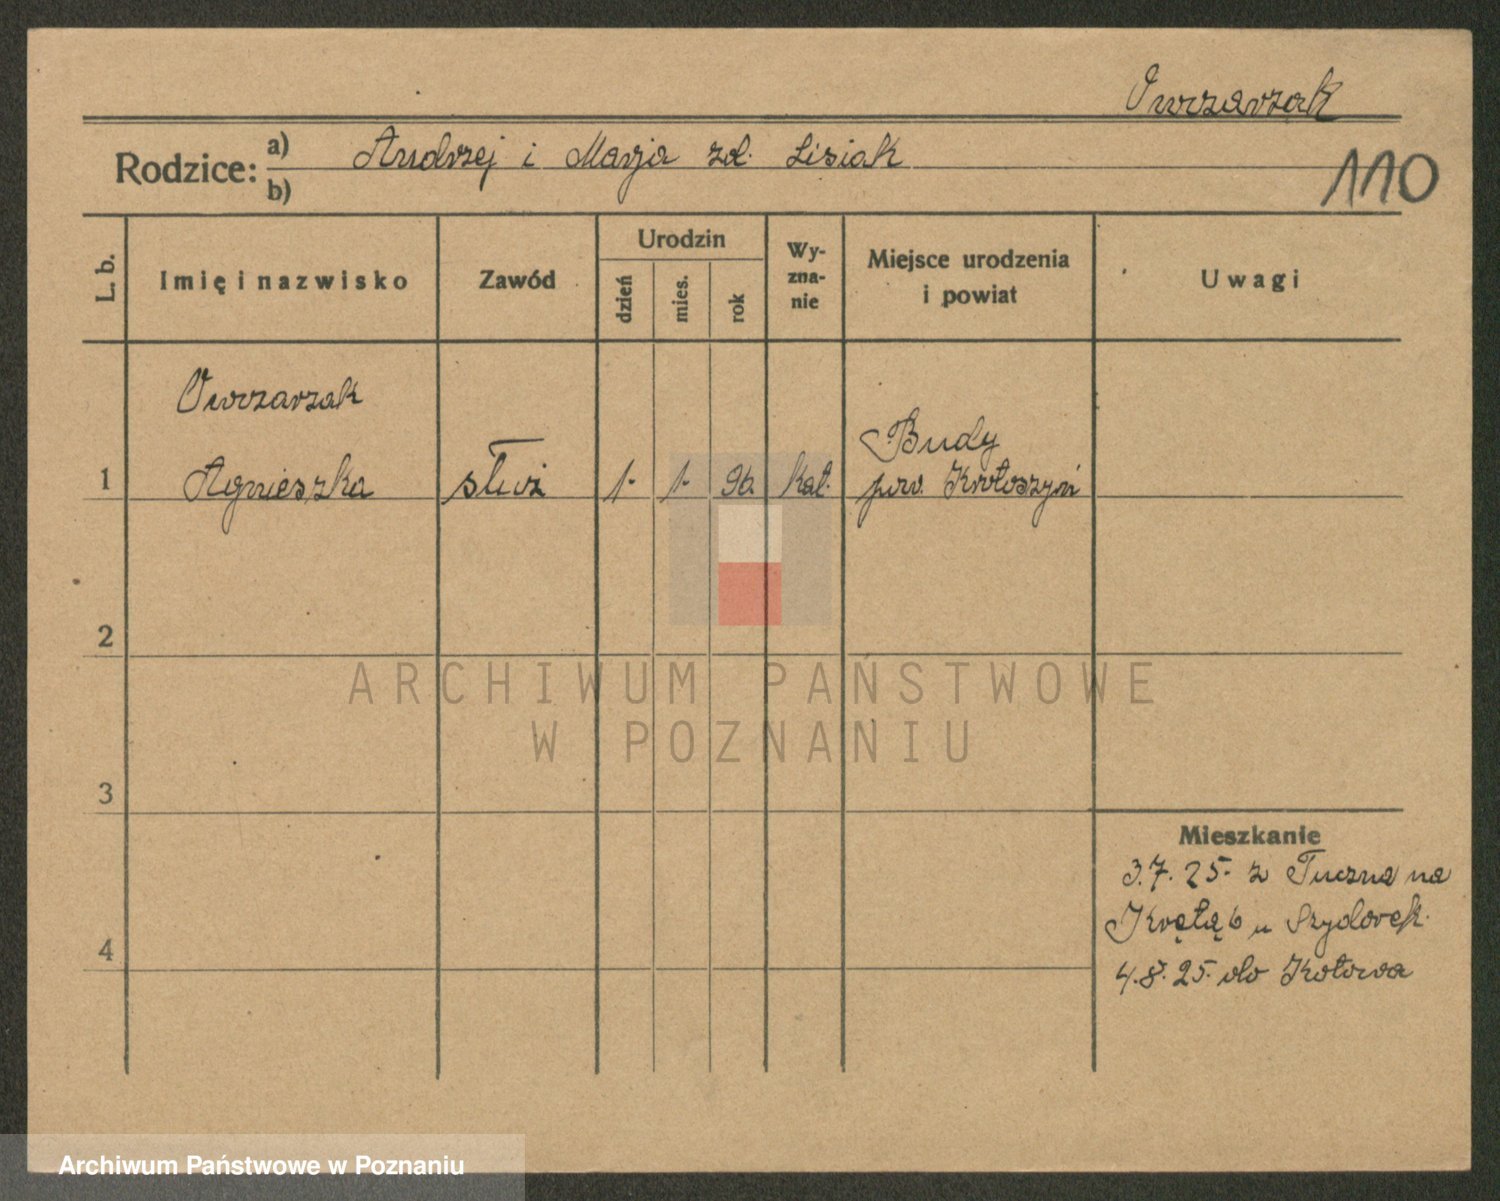 Owczarzak
Rodzice: a) Andrzej i Marja zd. Lisiak
b)
110
L. b. Imię i nazwisko Zawód Urodzin dzień mies. rok Wy-zna-nie Miejsce urodzenia i powiat Uwagi
Owczarzak
Budy
1 Agnieszka służ 1. 1. 96. kat. pow. Krotoszyń
2
ARCHIWUM PAŃSTWOWE
W POZNANIU
3
Mieszkanie
3.7.25. z Tuczna na
6 u
4
4.8.25. do Kotowa
Archiwum Państwowe w Poznaniu